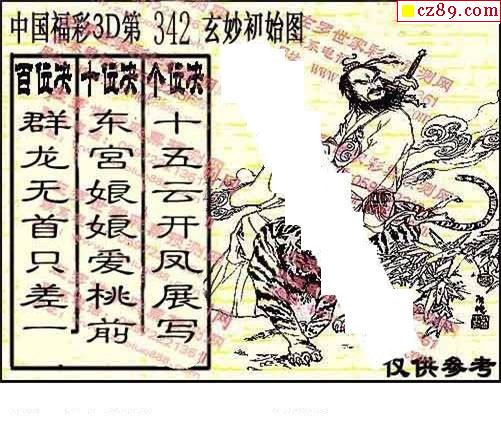 cz89.com
中国福彩3D第 342 玄妙初始图
百位决 十位决 个位决
群龙无首只差一
东宫娘娘爱桃前
十五云开凤展写
仅供参考